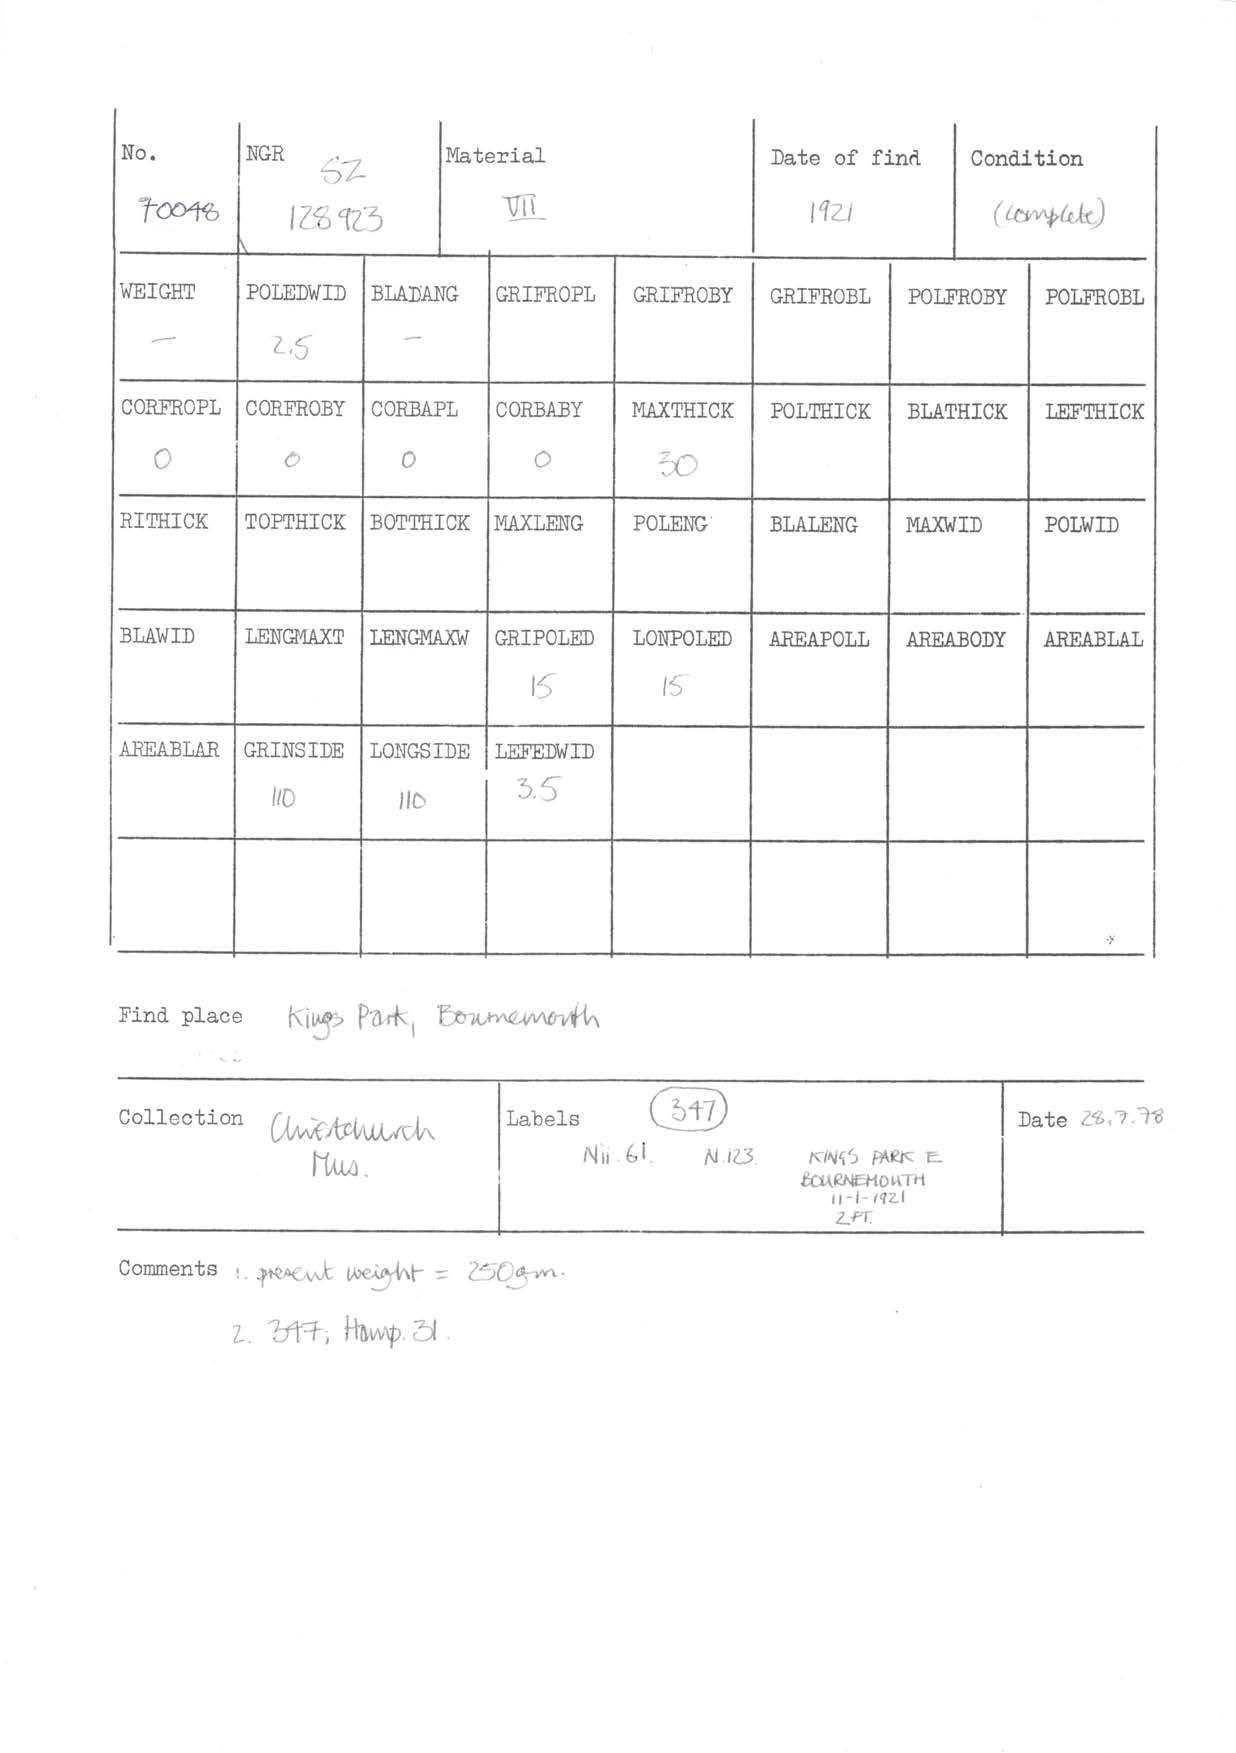 No. NGR Material Date of find Condition
SZ
70048 128923 VII 1921 (complete)
WEIGHT POLEDWID BLADANG GRIFROPL GRIFROBY GRIFROBL POLFROBY POLFROBL
— 2.5 —
CORFROPL CORFROBY CORBAPL CORBABY MAXTHICK POLTHICK BLATHICK LEFTHICK
0 0 0 0 30
RITHICK TOPTHICK BOTTHICK MAXLENG POLENG BLALENG MAXWID POLWID
BLAWID LENGMAXT LENGMAXW GRIPOLED LONPOLED AREAPOLL AREABODY AREABLAL
15 15
AREABLAR GRINSIDE LONGSIDE LEFEDWID
110 110 3.5
Find place Kings Park, Bournemouth
Collection Christchurch Mus.
Labels 347
Nii.61. N.123. KINGS PARK E
BOURNEMOUTH
11-1-1921
2 FT.
Date 28.7.78
Comments 1. present weight = 250gm.
2. 347; Hamp. 31.